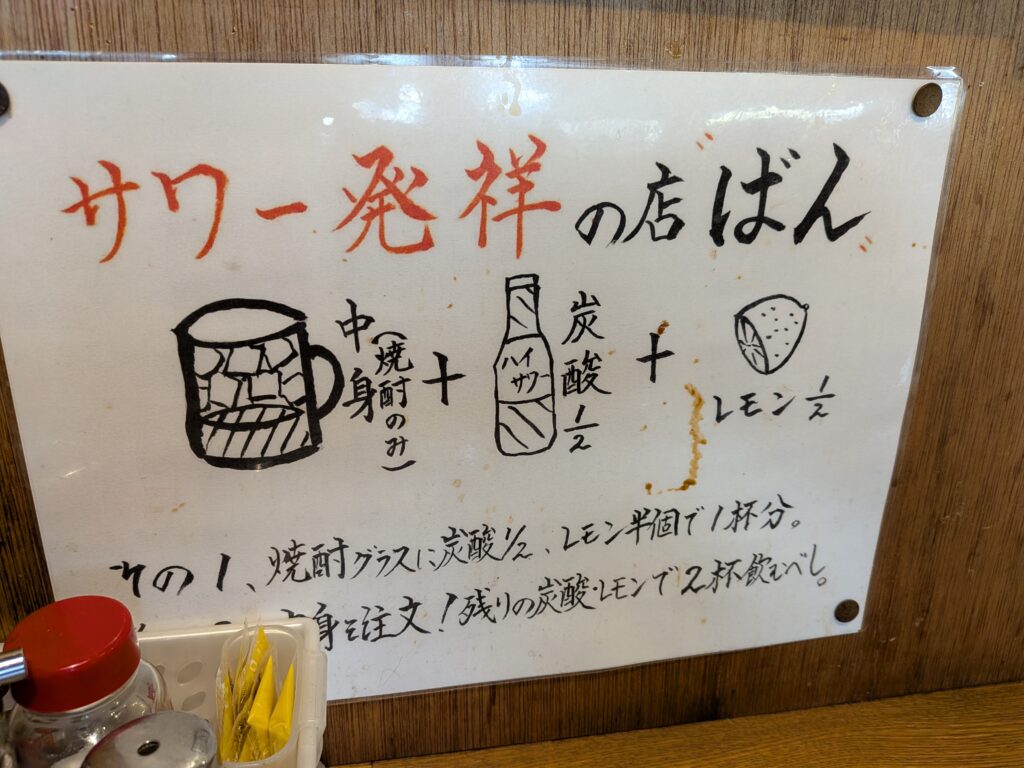 サワー発祥の店"ばん"
中身
(焼酎のみ)
+
ハイサワー
炭酸1/2
+
レモン1/2
その1、焼酎グラスに炭酸1/2、レモン半個で1杯分。
身を注文!残りの炭酸・レモンで2杯飲むべし。